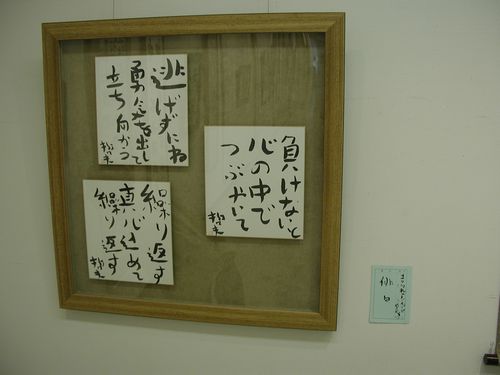 負けないと
心の中で
つぶやいて
逃げずにね
勇気を出して
立ち向かう
繰り返す
真心込めて
繰り返す
俳句